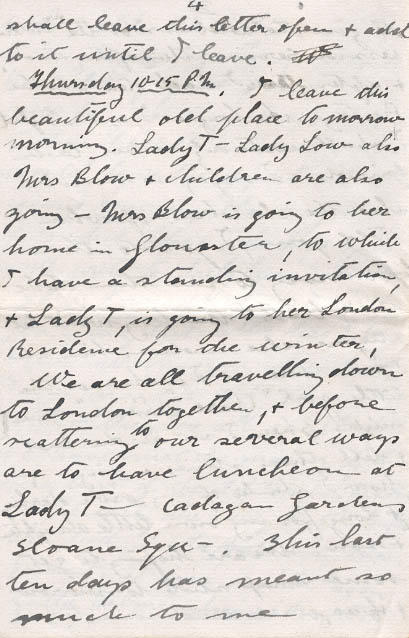 4
shall leave this letter open & add
to it until I leave.
Thursday 10-15 P.M. I leave this
beautiful old place tomorrow
morning. Lady T - Lady Low also
Mrs Blow & children are also
going - Mrs Blow is going to her
home in Glouster, to which
I have a standing invitation,
& Lady T, is going to her London
Residence for the winter,
We are all travelling down
to London together, & before
scattering to our several ways
are to have luncheon at
Lady T - Cadagan Gardens
Sloane Squ -. This last
ten days has meant so
much to me